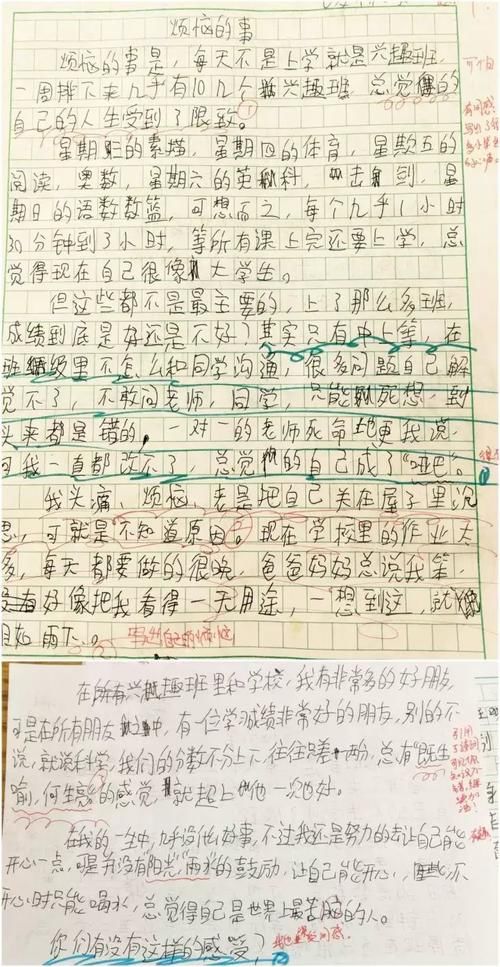 烦恼的事
烦恼的事是，每天不是上学就是兴趣班，
一周排下来几乎有10几个兴趣班，总觉得的
自己的人生受到了限致。
星期 的素描，星期四的体育，星期五的
阅读，奥数，星期六的英 科，击剑，星
期日的语数数篮，可想而之，每个几乎1小时
30分钟到3小时，等所有课上完还要上学，总
觉得现在自己很像大学生。
但这些都不是最主要的，上了那么多班，
成绩到底是好还是不好？其实只有中上等，在
班级里不怎么和同学沟通，很多问题自己解
觉不了，不敢问老师，同学，只能死想，到
头来都是错的，一对一的老师死命地更我说，
可我一直都改不了，总觉的自己成了“哑巴”。
我头痛，烦恼，老是把自己关在屋子里沉
思，可就是不知道原因。现在学校里的作业太
多，每天都要做的很晚，爸爸妈妈总说我笨，
好像把我看得一无用途，一想到这，就
目如雨下。
写出自己的烦恼
在所有兴趣班里和学校，我有非常多的好朋友，
可是在所有朋友之中，有一位学习成绩非常好的朋友，别的不
说，就说科学，我们的分数不分上下，往往差一两分，总有“既生
喻，何生亮”的感觉，就超上他一次也好。
在我的一生中，几乎没什么好事，不过我还是努力的去让自己能
开心一点，可是并没有阳光，雨水的鼓励，让自己能开心，不
开心时只能喝水，总觉得自己是世界上最苦恼的人。
你们有没有这样的感受？